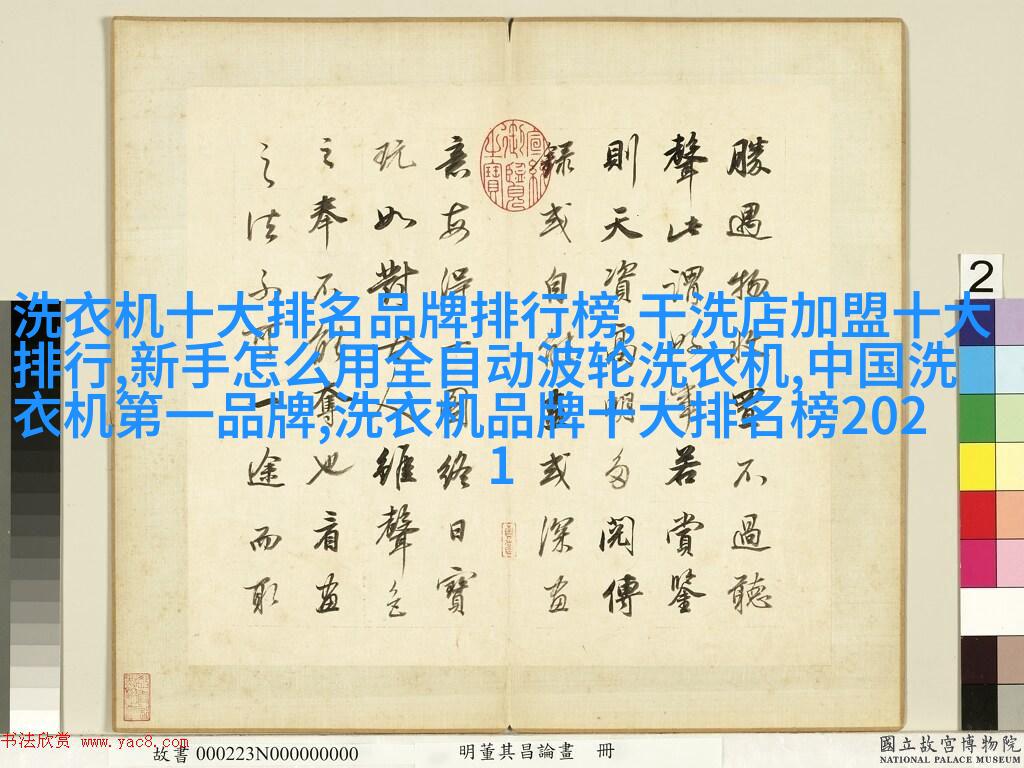 洗衣机十大排名品牌排行榜,干洗店加盟十大
排行,新手怎么用全自动波轮洗衣机,中国洗
衣机第一品牌,洗衣机品牌十大排名榜202
1
勝遇物收置不過聽
聲此謂好事若賞鑒
則天資高明多閱傳
錄或自能畫或深畫
意每得一圖終日寶
玩如對古人雖聲色
之奉不能奪也看畫
之法不可一途而取
宣統御覽之寶
2
书法欣赏 www.yac8.com
故書 000223N000000000
明董其昌論畫 冊
國立故宮博物院
NATIONAL PALACE MUSEUM